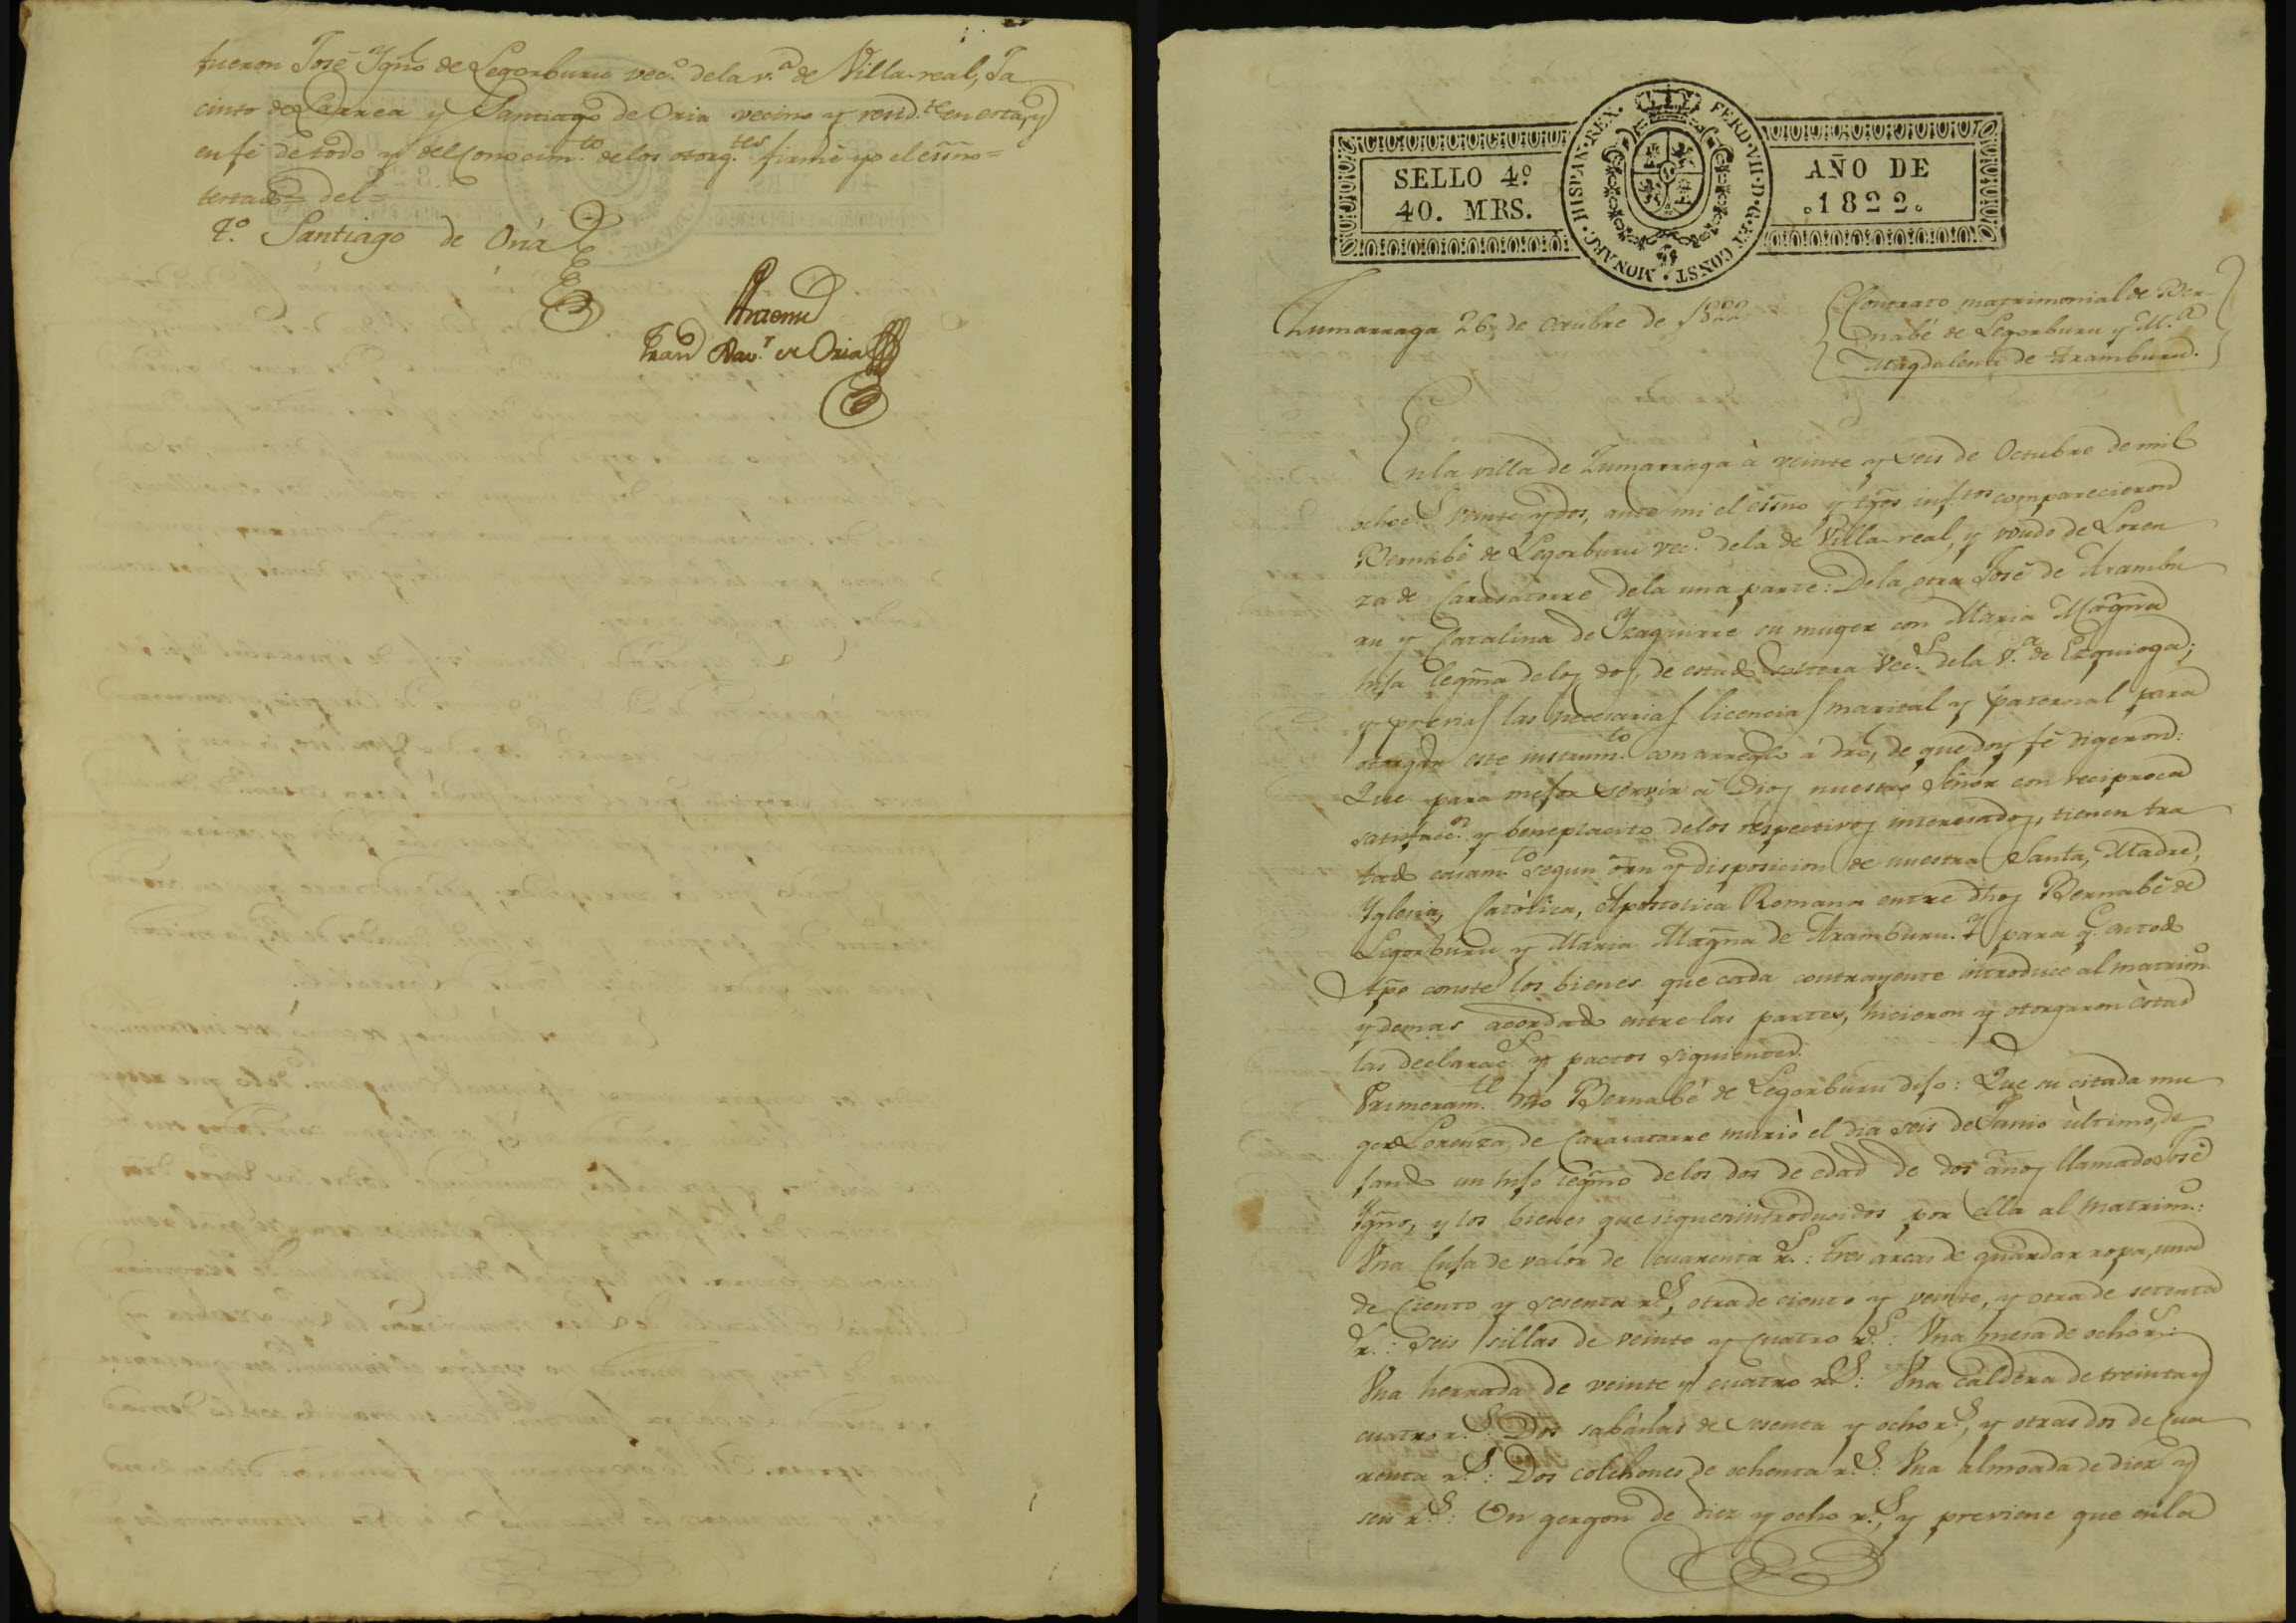 fueron José Ygn.º de Legorburu vec.º dela v.ª de Villa-real, Ja
cinto de Larrea y Santiago de Oria vecino y resid.te en esta, y
en fé de todo y del conocim.to de los otorg.tes firmé yo el essno=
testado= del=
T.º Santiago de Oria
Antemi
Fran.co Xav.r de Oria
SELLO 4º
40. MRS.
HISPAN·REX· FERD·VII·D·G·ET CONST·MONARC·
AÑO DE
·1822·
Zumarraga 26, de Octubre de 1822
Contrato matrimonial de Ber-
nabé de Legorburu y M.ª
Magdalena de Aramburu.
En la villa de Zumarraga à veinte y seis de Octubre de mil
ochoc.s veinte y dos, ante mi el essno y tgos inf.tos comparecieron
Bernabé de Legorburu vec.º dela de Villa-real, y viudo de Loren
za de Carasatorre dela una parte: Dela otra José de Arambu
ru y Catalina de Yzaguirre su muger con Maria Magna
hija legma delos dos, de estado soltera vec.s dela v.ª de Ezquioga;
y previas las necesarias licencias marital y paternal para
otorgar este instrum.to con arreglo á dro, de que doy fé digeron:
Que para mejor servir á Dios nuestro Señor con reciproca
satisfacc.on y beneplacito delos respectivos interesados, tienen tra
tado casam.to segun orn y disposicion de nuestra Santa, Madre,
Yglesia, Catòlica, Apostolica Romana entre dhos Bernabé de
Legorburu y Maria Magna de Aramburu. Y para q.e atodo
tpo conste los bienes que cada contrayente introduce al matrim.º
y demas acordado entre las partes, hicieron y otorgaron èstas
las declarac.s y pactos siguientes.
Primeram.te dho Bernabé de Legorburu dijo: Que su citada mu
ger Lorenza de Carasatorre murió el dia seis de Junio ùltimo, de
jando un hijo legmo delos dos de edad de dos años llamado José
Ygno, y los bienes que siguen introducidos por ella al matrim.º:
Una Cuja de valor de cuarenta r.s: tres arcas de guardar ropa, una
de ciento y sesenta r.s, otra de ciento y veinte, y otra de setenta
r.s: seis sillas de veinte y cuatro r.s: Una mesa de ocho r.s:
Una herrada de veinte y cuatro r.s: Una caldera de treinta y
cuatro r.s: Dos sabánas de sesenta y ocho r.s, y otras dos de cua
renta r.s: Dos colchones de ochenta r.s: Una almoada de diez y
seis r.s: Un gergon de diez y ocho r.s, y previene que en la